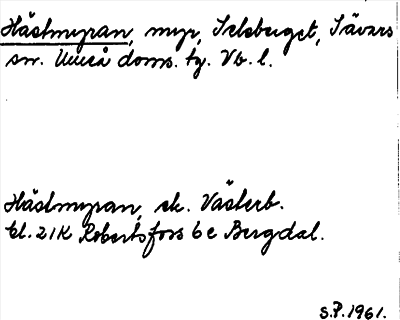 Hästmyran, myr, Selsberget, Sävars
sn. Umeå doms. tg. Vb. l.
Hästmyran, ek. Västerb.
bl. 21K Robertsfors 6 e Bergdal.
S.P. 1961.